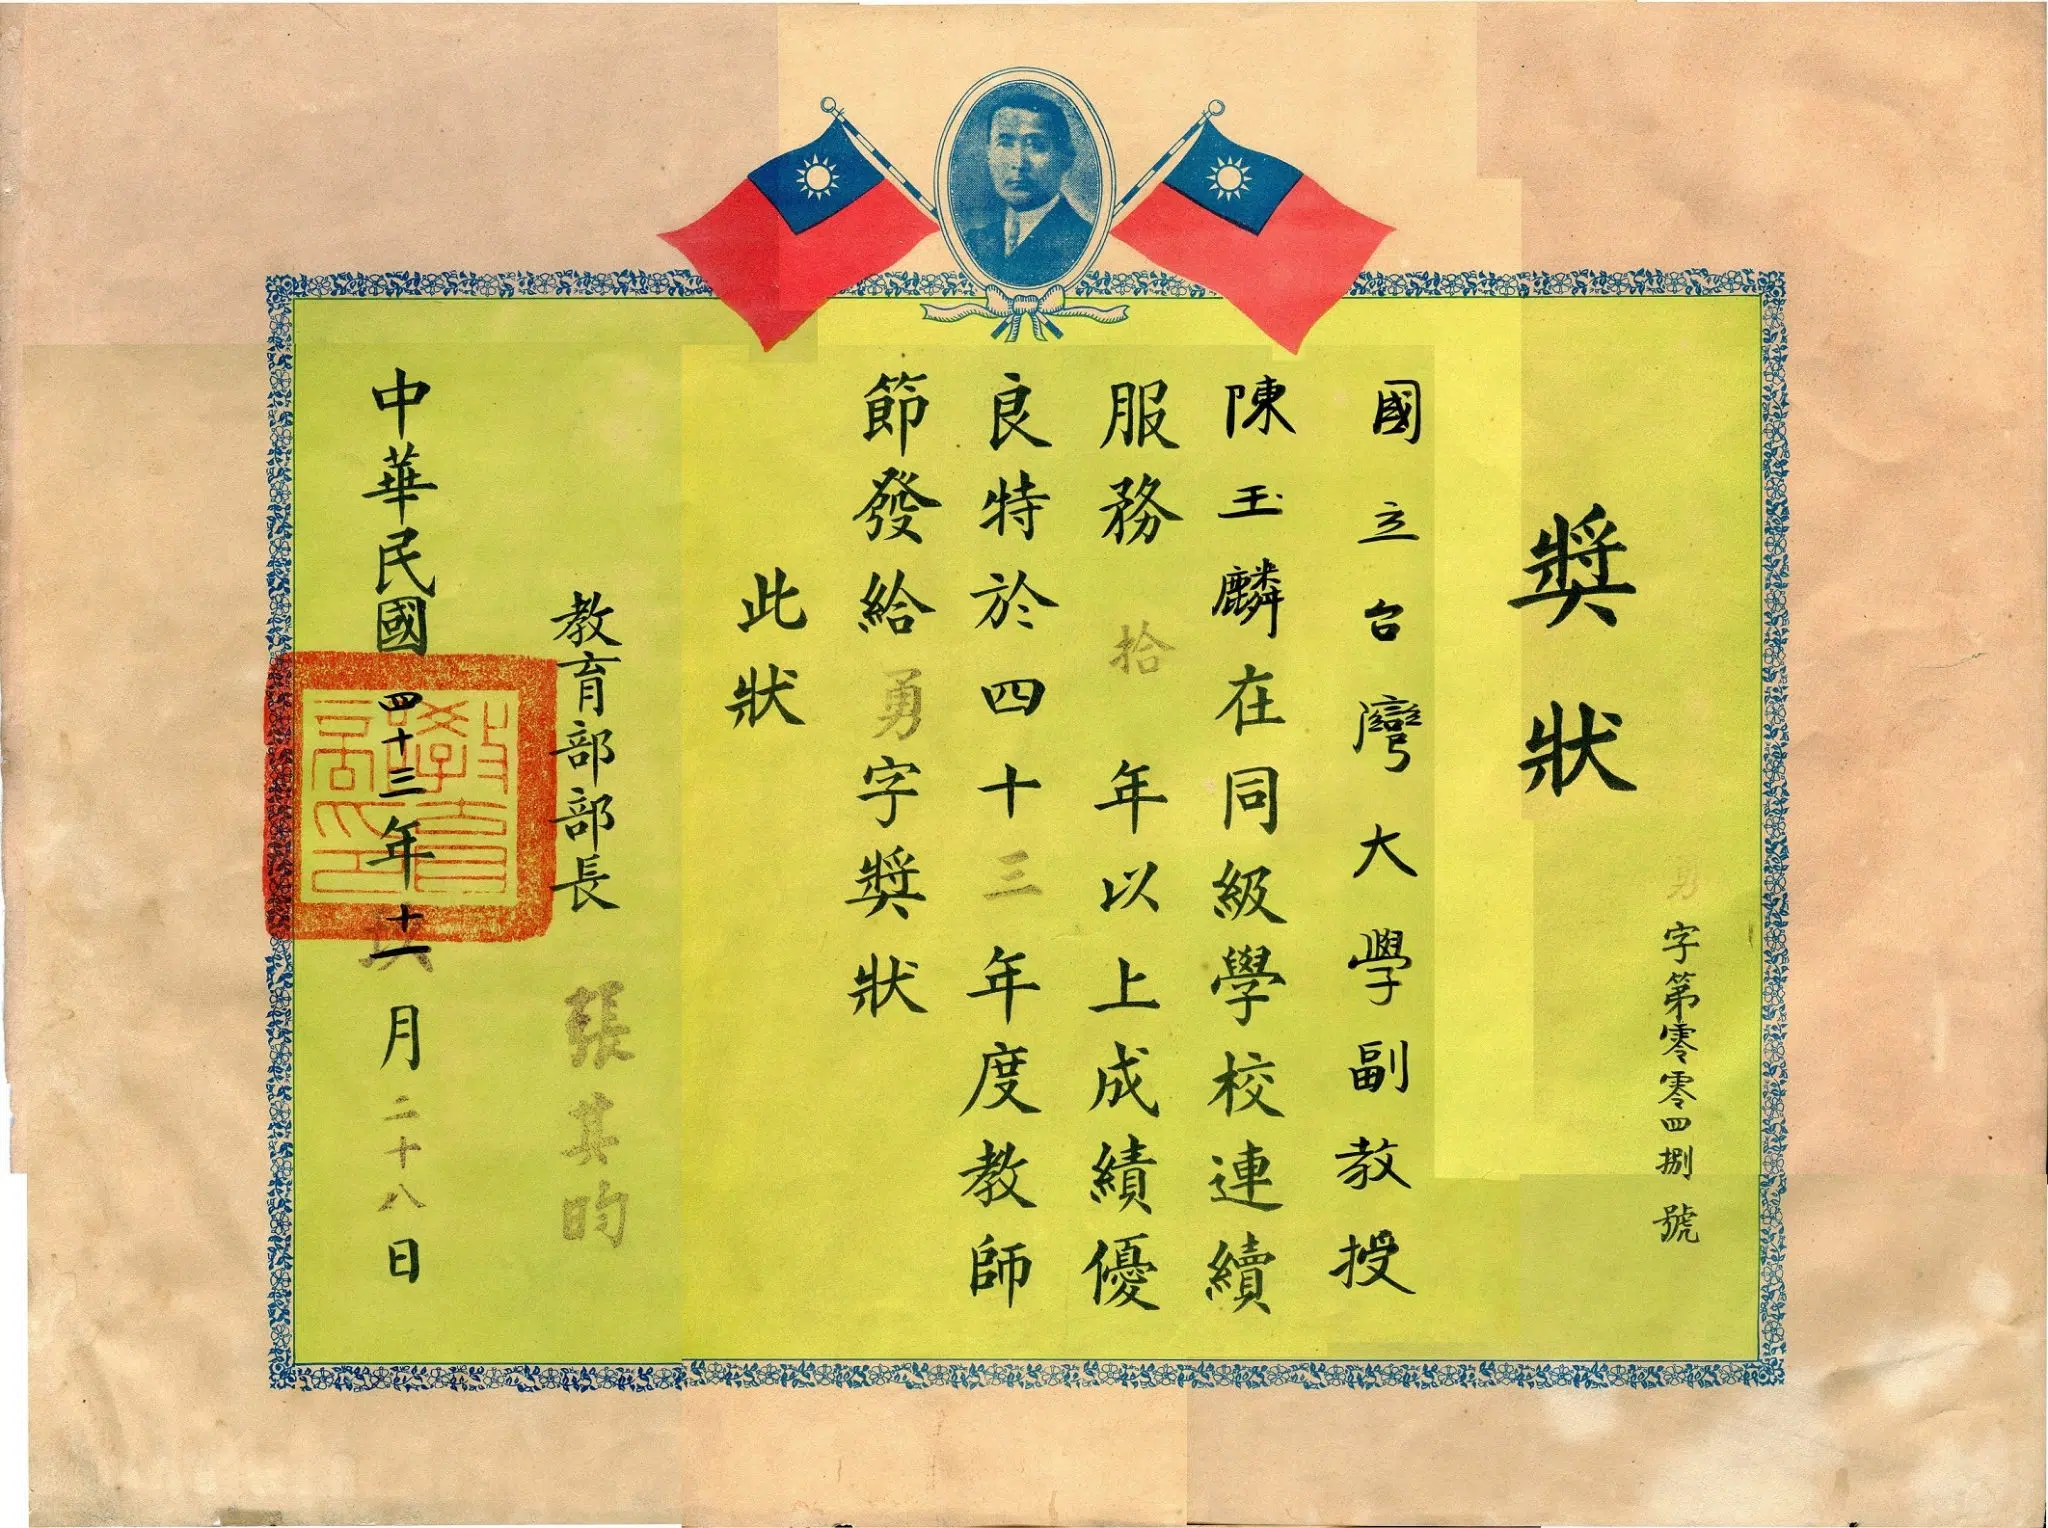 獎狀
勇字第零零四捌號
國立台灣大學副教授
陳玉麟在同級學校連續
服務拾年以上成績優
良特於四十三年度教師
節發給勇字獎狀
此狀
教育部部長 張其昀
中華民國四十三年十一月二十八日